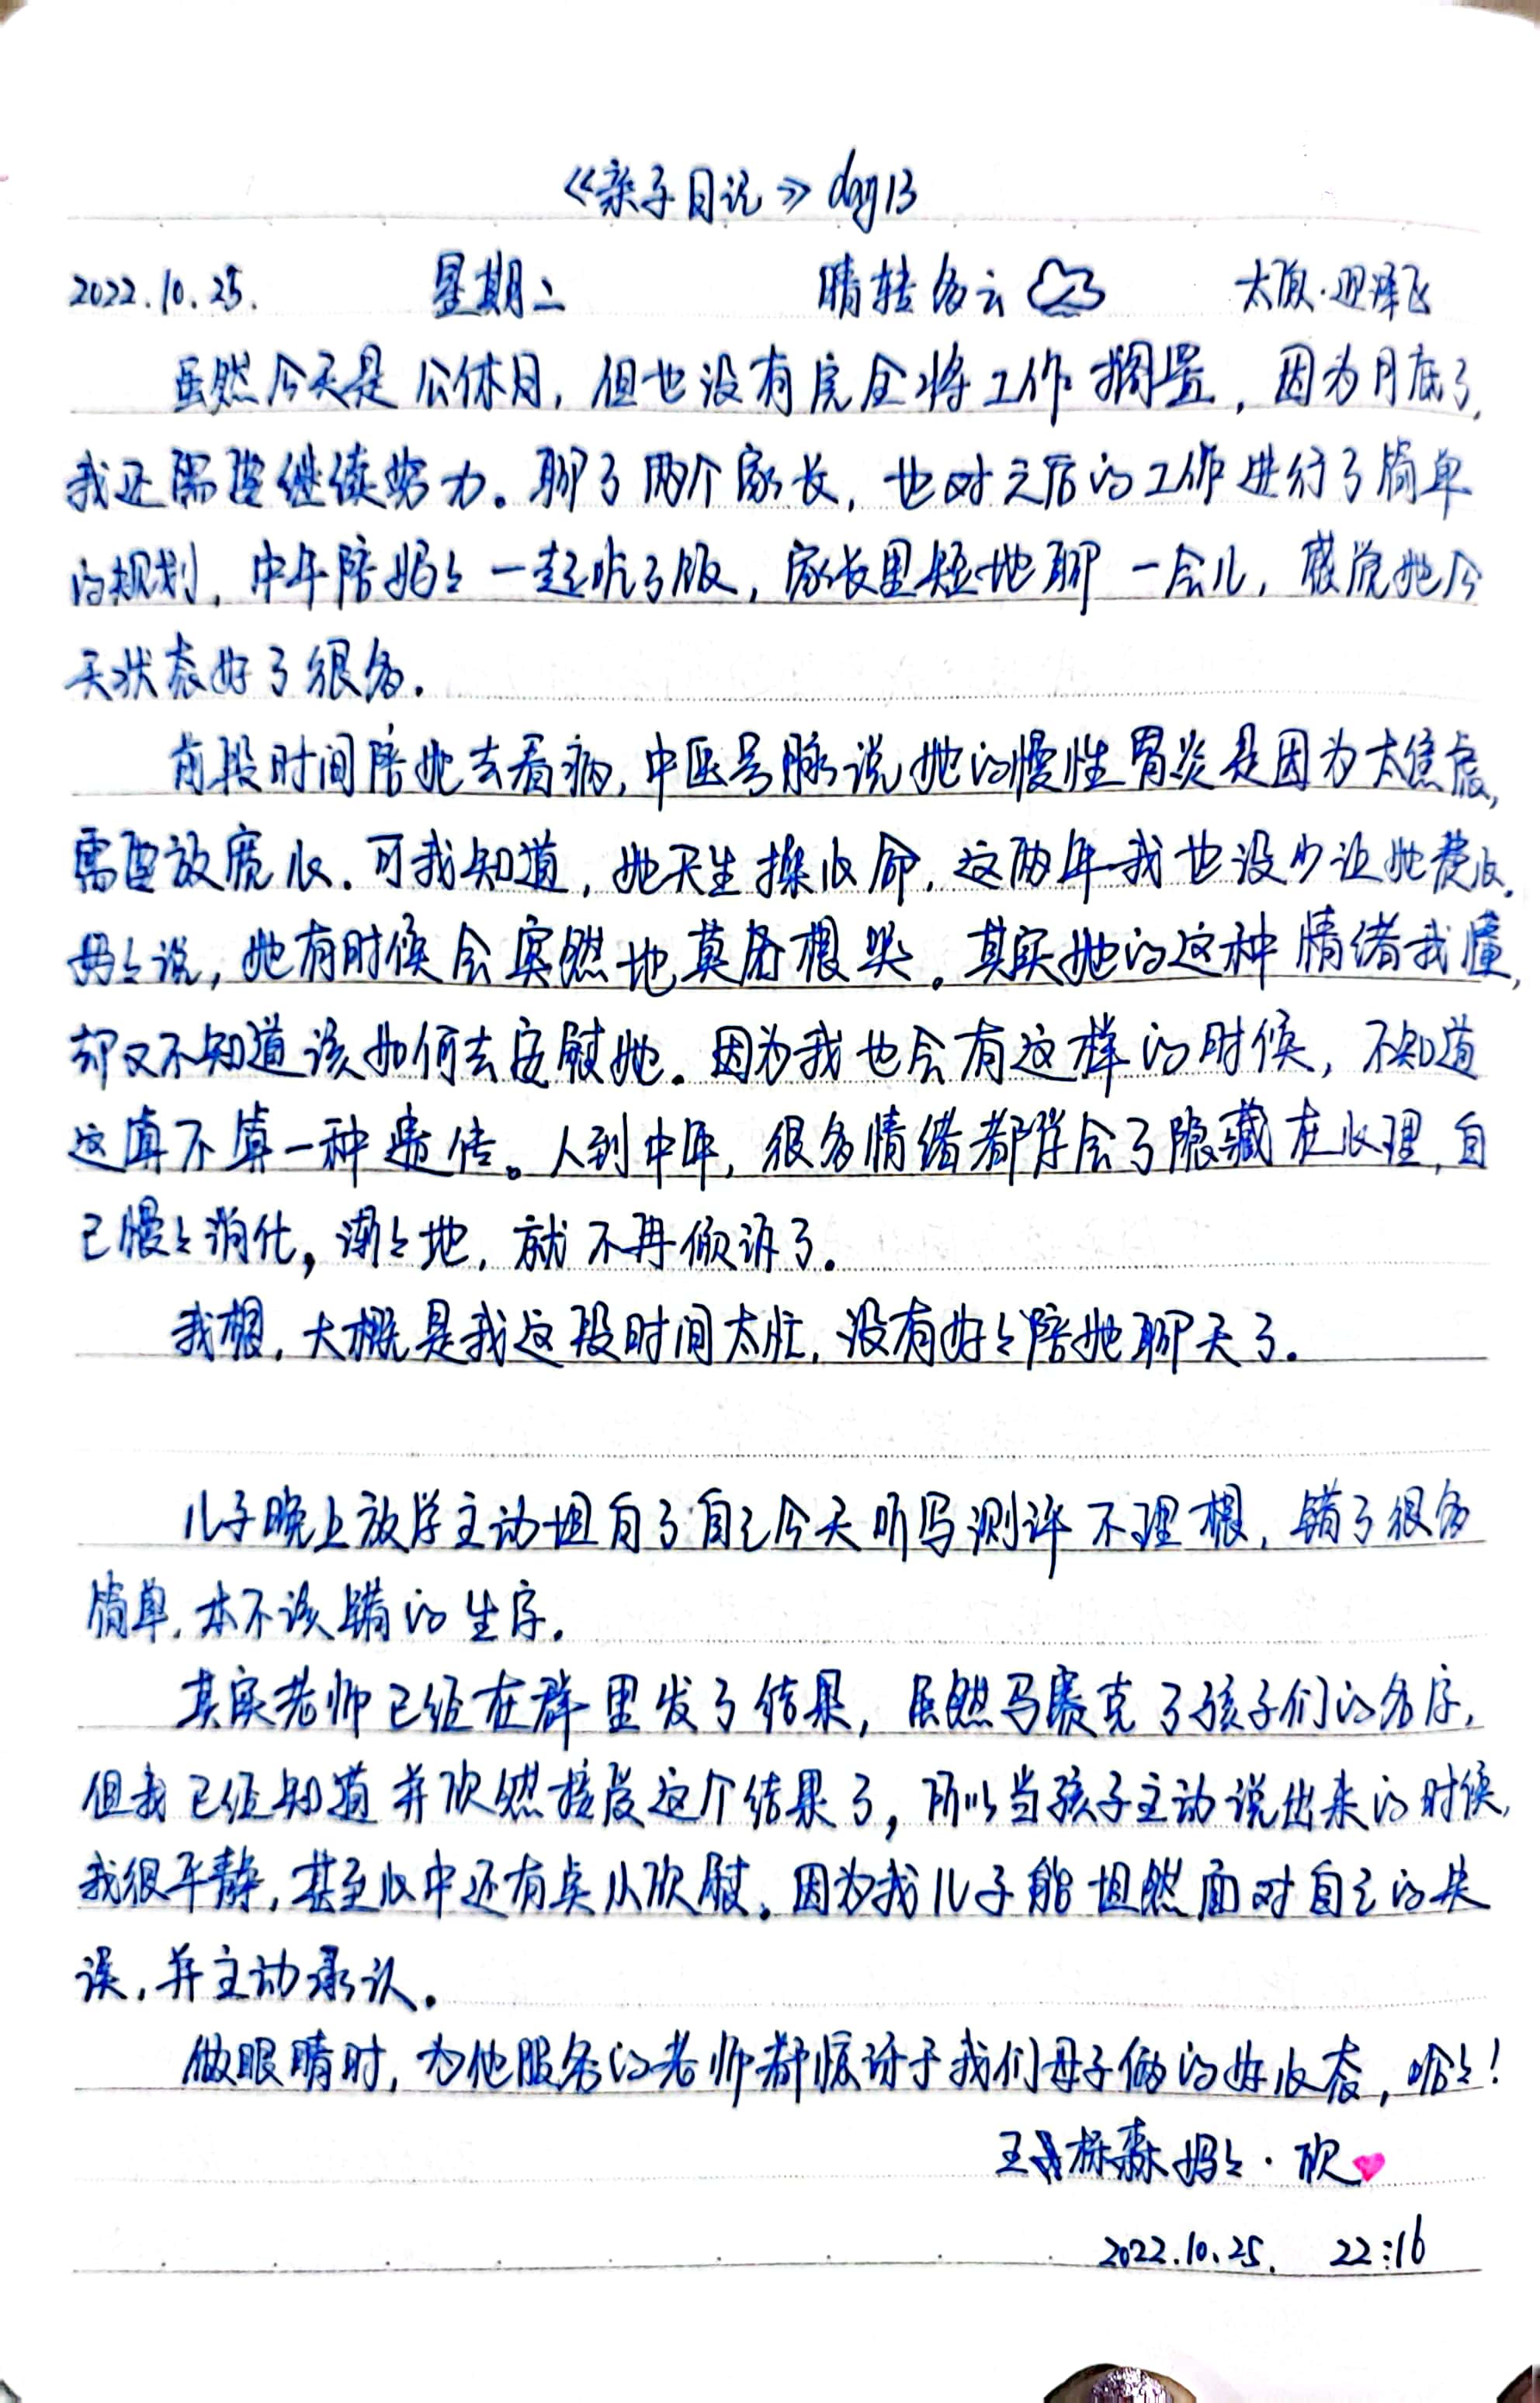 《亲子日记》day13
2022.10.25. 星期二 晴转多云 太原·迎泽区
虽然今天是公休日,但也没有完全将工作搁置,因为月底了,
我还需要继续努力。聊了两个家长,也对之后的工作进行了简单
的规划,中午陪妈々一起吃了饭,家长里短地聊一会儿,感觉她今
天状态好了很多.
前段时间陪她去看病,中医号脉说她的慢性胃炎是因为太焦虑,
需要放宽心.可我知道,她天生操心命,这两年我也没少让她费心.
妈々说,她有时候会突然地莫名想哭。其实她的这种情绪我懂,
却又不知道该如何去安慰她.因为我也会有这样的时候,不知道
这算不算一种遗传。人到中年,很多情绪都学会了隐藏在心理,自
己慢々消化,渐々地,就不再倾诉了.
我想,大概是我这段时间太忙,没有好々陪她聊天了.
儿子晚上放学主动坦白了自己今天听写测评不理想,错了很多
简单,本不该错的生字.
其实老师已经在群里发了结果,虽然马赛克了孩子们的名字,
但我已经知道并欣然接受这个结果了,所以当孩子主动说出来的时候,
我很平静,甚至心中还有点儿欣慰.因为我儿子能坦然面对自己的失
误,并主动承认.
做眼睛时,为他服务的老师都惊讶于我们母子俩的好心态,哈々!
王栎森妈々·欣
2022.10.25. 22:16